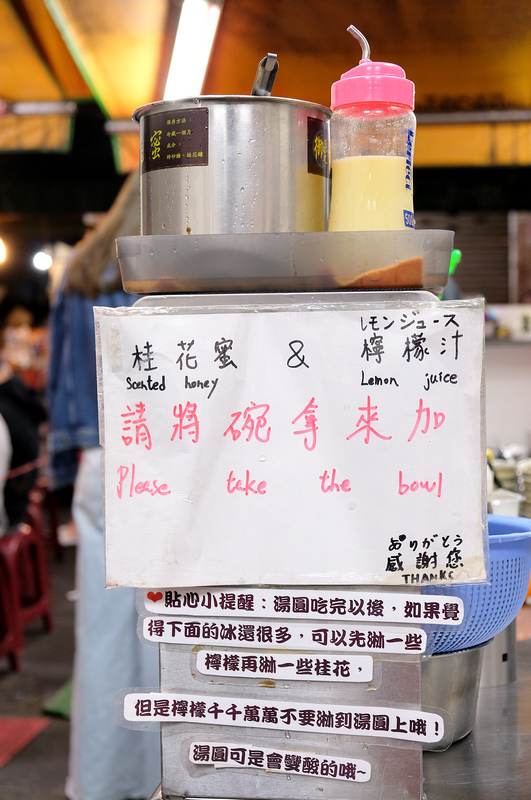 蜜
保存方法：
冷藏一個月
成分：
500
レモンジュース
桂花蜜 & 檸檬汁
Scented honey Lemon juice
請將碗拿來加
Please take the bowl
ありがとう
感謝您
THANKS
❤貼心小提醒：湯圓吃完以後，如果覺
得下面的冰還很多，可以先淋一些
檸檬再淋一些桂花，
但是檸檬千千萬萬不要淋到湯圓上哦！
湯圓可是會變酸的哦~